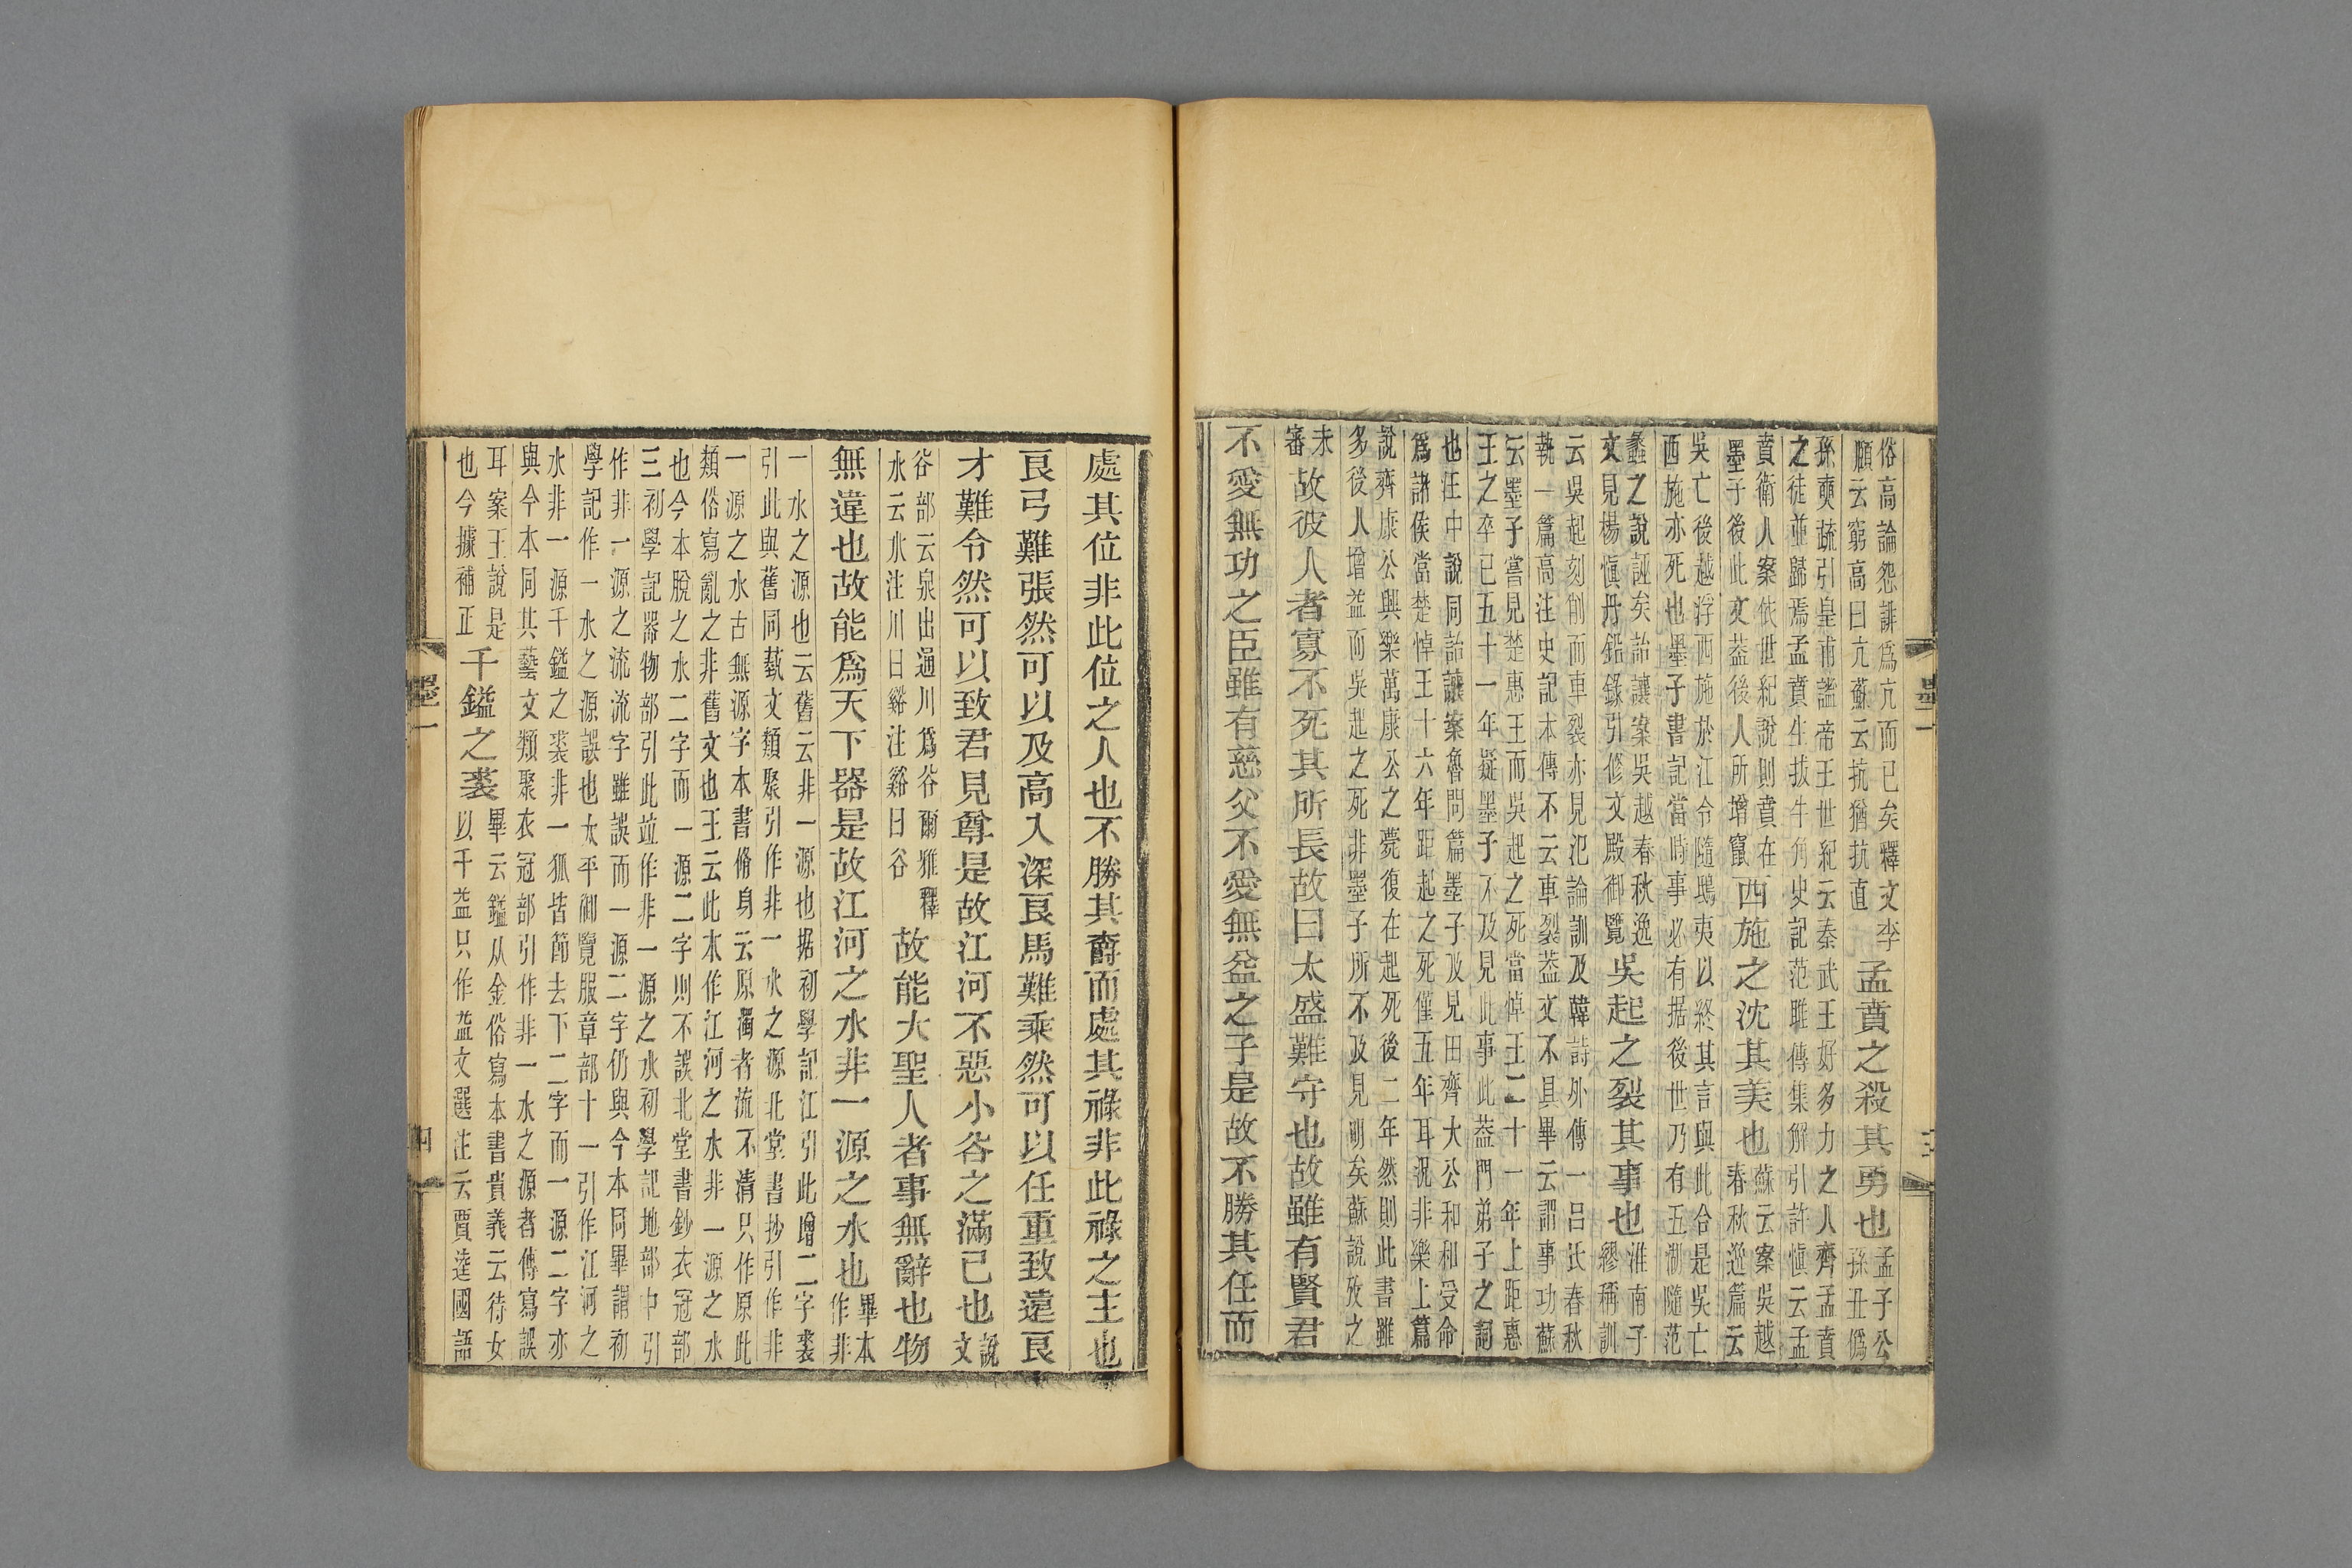 俗高論怨誹爲亢而已矣釋文李
頤云窮高曰亢蘇云抗猶抗直
孟賁之殺其勇也
孟子公
孫丑僞
孫奭疏引皇甫謐帝王世紀云秦武王好多力之人齊孟賁
之徒並歸焉孟賁生拔牛角史記范雎傳集解引許愼云孟
賁衛人案依世紀說則賁在
墨子後此文葢後人所增竄
西施之沈其美也
蘇云案吳越
春秋逸篇云
吳亡後越浮西施於江令隨鴟夷以終其言與此合是吳亡
西施亦死也墨子書記當時事必有据後世乃有五湖隨范
蠡之說誣矣詒讓案吳越春秋逸
文見楊愼丹鉛錄引修文殿御覽
吳起之裂其事也
淮南子
繆稱訓
云吳起刻削而車裂亦見氾論訓及韓詩外傳一呂氏春秋
執一篇高注史記本傳不云車裂葢文不具畢云謂事功蘇
云墨子嘗見楚惠王而吳起之死當悼王二十一年上距惠
王之卒已五十一年疑墨子不及見此事此葢門弟子之詞
也汪中說同詒讓案魯問篇墨子及見田齊大公和和受命
爲諸侯當楚悼王十六年距起之死僅五年耳況非樂上篇
說齊康公興樂萬康公之薨復在起死後二年然則此書雖
多後人增益而吳起之死非墨子所不及見明矣蘇說攷之
未
審
故彼人者寡不死其所長故曰太盛難守也故雖有賢君
不愛無功之臣雖有慈父不愛無益之子是故不勝其任而
處其位非此位之人也不勝其爵而處其祿非此祿之主也
良弓難張然可以及高入深良馬難乘然可以任重致遠良
才難令然可以致君見尊是故江河不惡小谷之滿己也
說
文
谷部云泉出通川爲谷爾雅釋
水云水注川曰谿注谿曰谷
故能大聖人者事無辭也物
無違也故能爲天下器是故江河之水非一源之水也
畢本
作非
一水之源也云舊云非一源也据初學記江引此增二字裘
引此與舊同蓺文類聚引作非一水之源北堂書抄引作非
一源之水古無源字本書脩身云原濁者流不清只作原此
類俗寫亂之非舊文也王云此本作江河之水非一源之水
也今本脫之水二字而一源二字則不誤北堂書鈔衣冠部
三初學記器物部引此竝作非一源之水初學記地部中引
作非一源之流流字雖誤而一源二字仍與今本同畢謂初
學記作一水之源誤也太平御覽服章部十一引作江河之
水非一源千鎰之裘非一狐皆節去下二字而一源二字亦
與今本同其藝文類聚衣冠部引作非一水之源者傳寫誤
耳案王說是
也今據補正
千鎰之裘
畢云鎰从金俗寫本書貴義云待女
以千益只作益文選注云賈逵國語
墨一
四